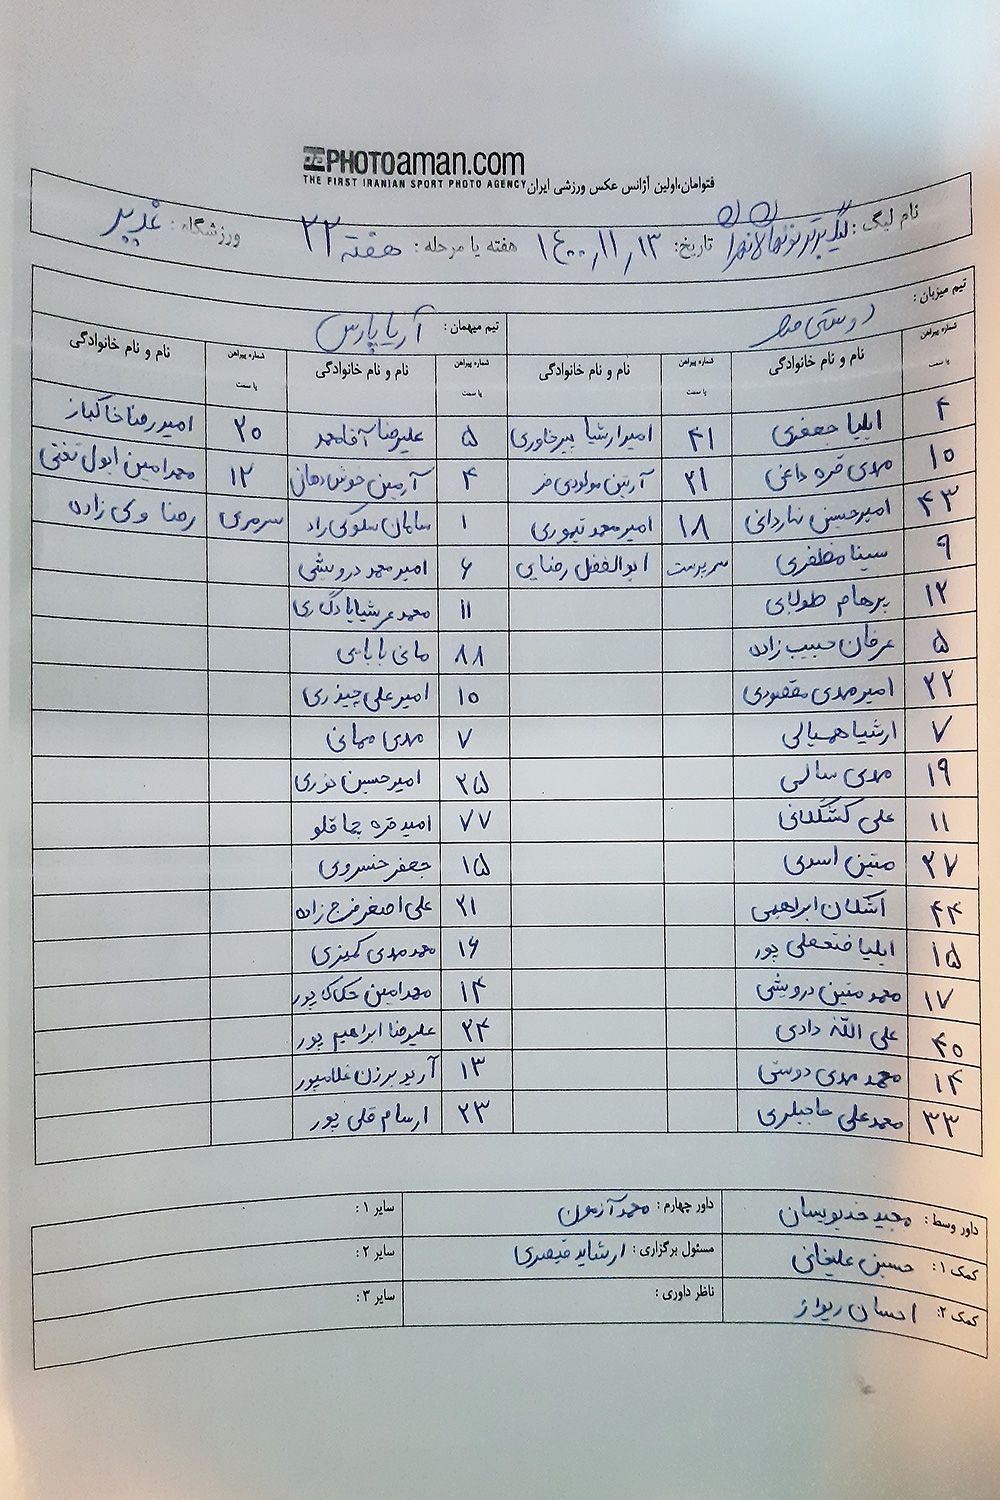 PHOTOaman.com
THE FIRST IRANIAN SPORT PHOTO AGENCY فتوامان،اولین آژانس عکس ورزشی ایران
نام لیگ: لیگ برتر نونهالان تهران تاریخ: ۱۴۰۰،۱۱،۱۳ هفته یا مرحله: هفته ۲۲ ورزشگاه: غدیر
تیم میزبان: دوستی
تیم میهمان: آریا پارس
شماره پیراهن یا سمت نام و نام خانوادگی شماره پیراهن یا سمت نام و نام خانوادگی شماره پیراهن یا سمت نام و نام خانوادگی شماره پیراهن یا سمت نام و نام خانوادگی
۴ ایلیا جعفری ۴۱ امیرارشیا پیرخاوری ۵ علیرضا آقامحمد ۲۰ امیررضا خاکباز
۱۰ مهدی قره داغی ۲۱ آرتین مولودی فر ۴ آرمین خوش دهان ۱۲ محمدامین ابول تفتی
۴۳ امیرحسن ناردانی ۱۸ امیرمحمد تیموری ۱ سامان سلوکی راد سرمربی رضا وکی زاده
۹ سینا مظفری سرپرست ابوالفضل رضایی ۶ امیرمحمد درویشی
۱۲ پرهام طولابی ۱۱ محمدعرشیا یادگاری
۵ عرفان حبیب زاده ۸۸ مانی بابایی
۲۲ امیرمهدی مقصودی ۱۰ امیرعلی چیذری
۷ ارشیا همیالی ۷ مهدی مهمانی
۱۹ مهدی سالمی ۲۵ امیرحسین نوری
۱۱ علی کشتکانی ۷۷ امید قره چماقلو
۲۷ متین اسدی ۱۵ جعفر خسروی
۴۴ اشکان ابراهیمی ۲۱ علی اصغر فرج زاده
۱۵ ایلیا فتحعلی پور ۱۶ محمدمهدی کمیزی
۱۷ محمد متین درویشی ۱۴ محمدامین حکاک پور
۴۰ علی الله دادی ۲۴ علیرضا ابراهیم پور
۱۴ محمد مهدی دوستی ۱۳ آریوبرزن غلامپور
۳۳ محمدعلی حاجیلری ۲۳ ارسام قلی پور
داور وسط: مجید خدیویسان داور چهارم: محمد آزمون سایر ۱:
کمک ۱: حسین علیخانی مسئول برگزاری: ارشاید قیصری سایر ۲:
کمک ۲: احسان ریواز ناظر داوری: سایر ۳: